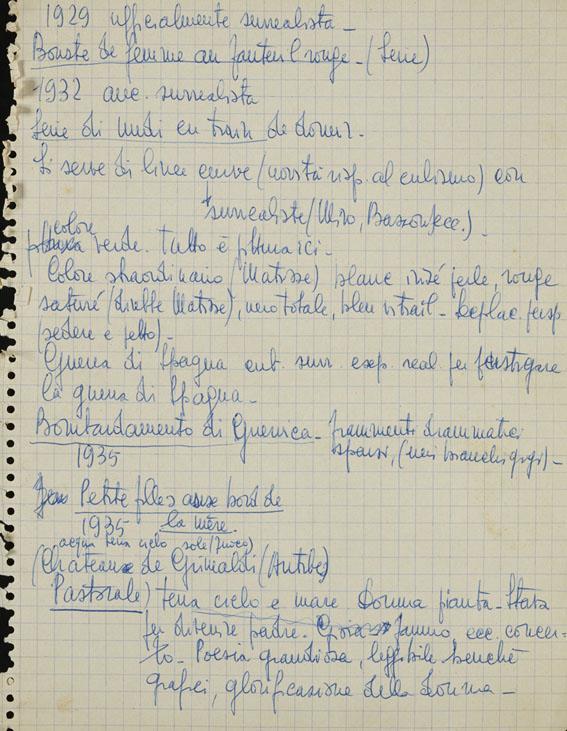 1929 ufficialmente surrealista -
Bouste de femme au fauteuil rouge - (Serie)
1932 anc. surrealista
Serie di nudi en train de dormir.
Si serve di linee curve (novità risp. al cubismo) con
surrealiste (Miro, ecc.) -
colore
verde. Tutto è pittura ici -
Colore straordinario (Matisse) blanc irisé perle, rouge
saturé (direbbe Matisse), nero totale, bleu vitrail - persp
(sedere e petto) -
Guerra di Spagna cub. surr esp. real per fustigare
la guerra di Spagna -
Bombardamento di Guernica - frammenti drammatici
1935 sparsi, (neri bianchi grigi) -
Petite filles au bord de
1935 la mère.
acqua terra cielo sole (fuoco)
(Chateau de Grimaldi (Antibes)
Pastorale) terra cielo e mare. Donna pianta - Stava
per divenire padre. Fauno, ecc. concer-
to - Poesia grandiosa, leggibile benchè
glorificazione della donna -